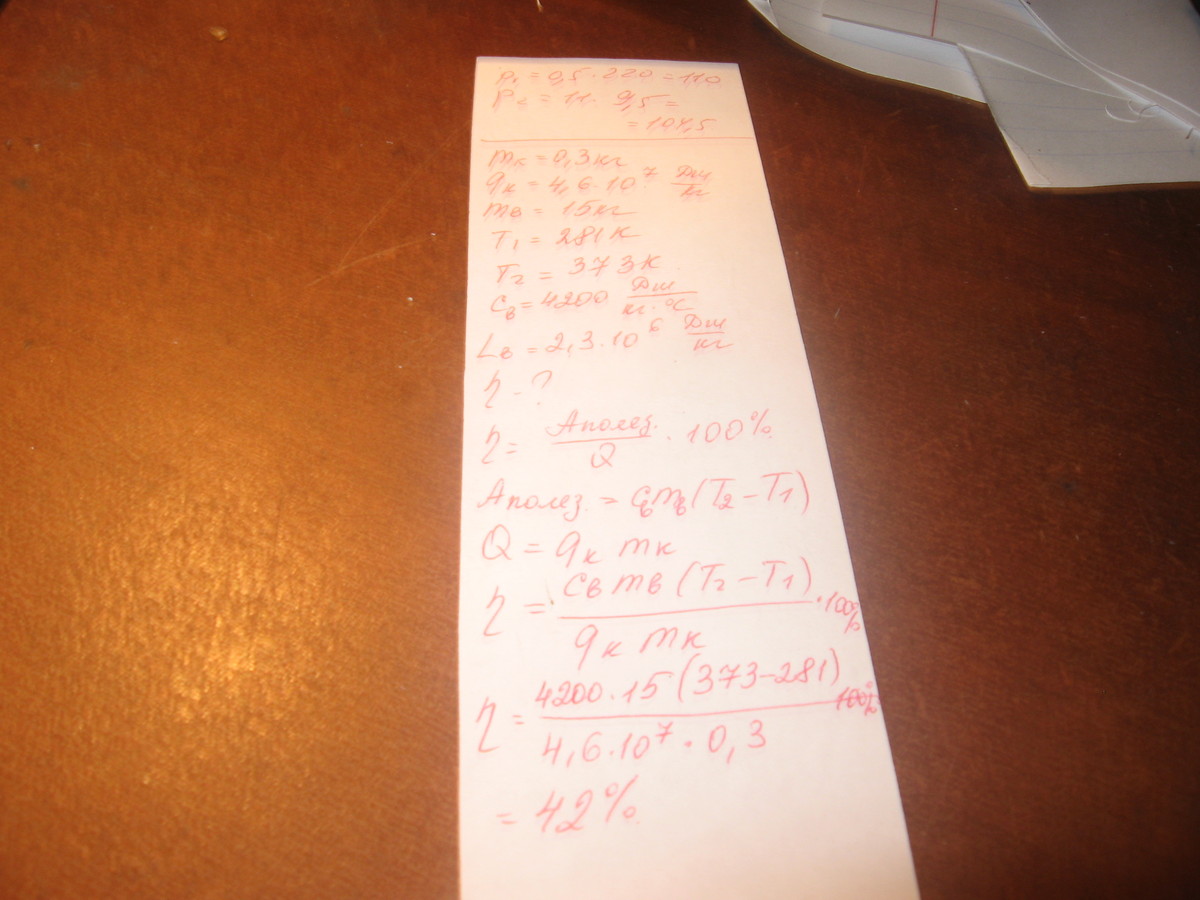 P₁ = 0,5 · 220 = 110
P₂ = 11 · 9,5 =
= 104,5
mк = 0,3 кг
qк = 4,6 · 10⁷ Дж/кг
mв = 15 кг
T₁ = 281 К
T₂ = 373 К
Cв = 4200 Дж/кг·°C
Lв = 2,3 · 10⁶ Дж/кг
η - ?
η = Aполез./Q · 100%
Aполез. = Cвmв(T₂ - T₁)
Q = qк mк
η = Cв mв (T₂ - T₁)/qк mк · 100%
η = 4200 · 15 (373 - 281)/4,6 · 10⁷ · 0,3 100%
= 42%